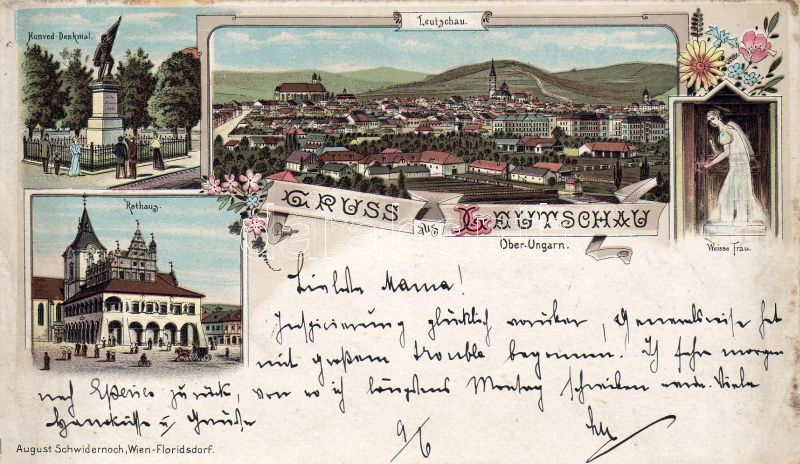 Leutschau.
Honved-Denkmal.
Rathaus.
GRUSS AUS LEUTSCHAU
Ober-Ungarn.
Weisse Frau.
Liebste Mama!
Inspicierung glücklich vorüber, Generalsreise hat
mit großem trouble begonnen. Ich fahre morgen
nach Eperies zurück, von wo ich längstens Montag schreiben werde. Viele
Handküsse u. Grüße
9/6
August Schwidernoch, Wien-Floridsdorf.